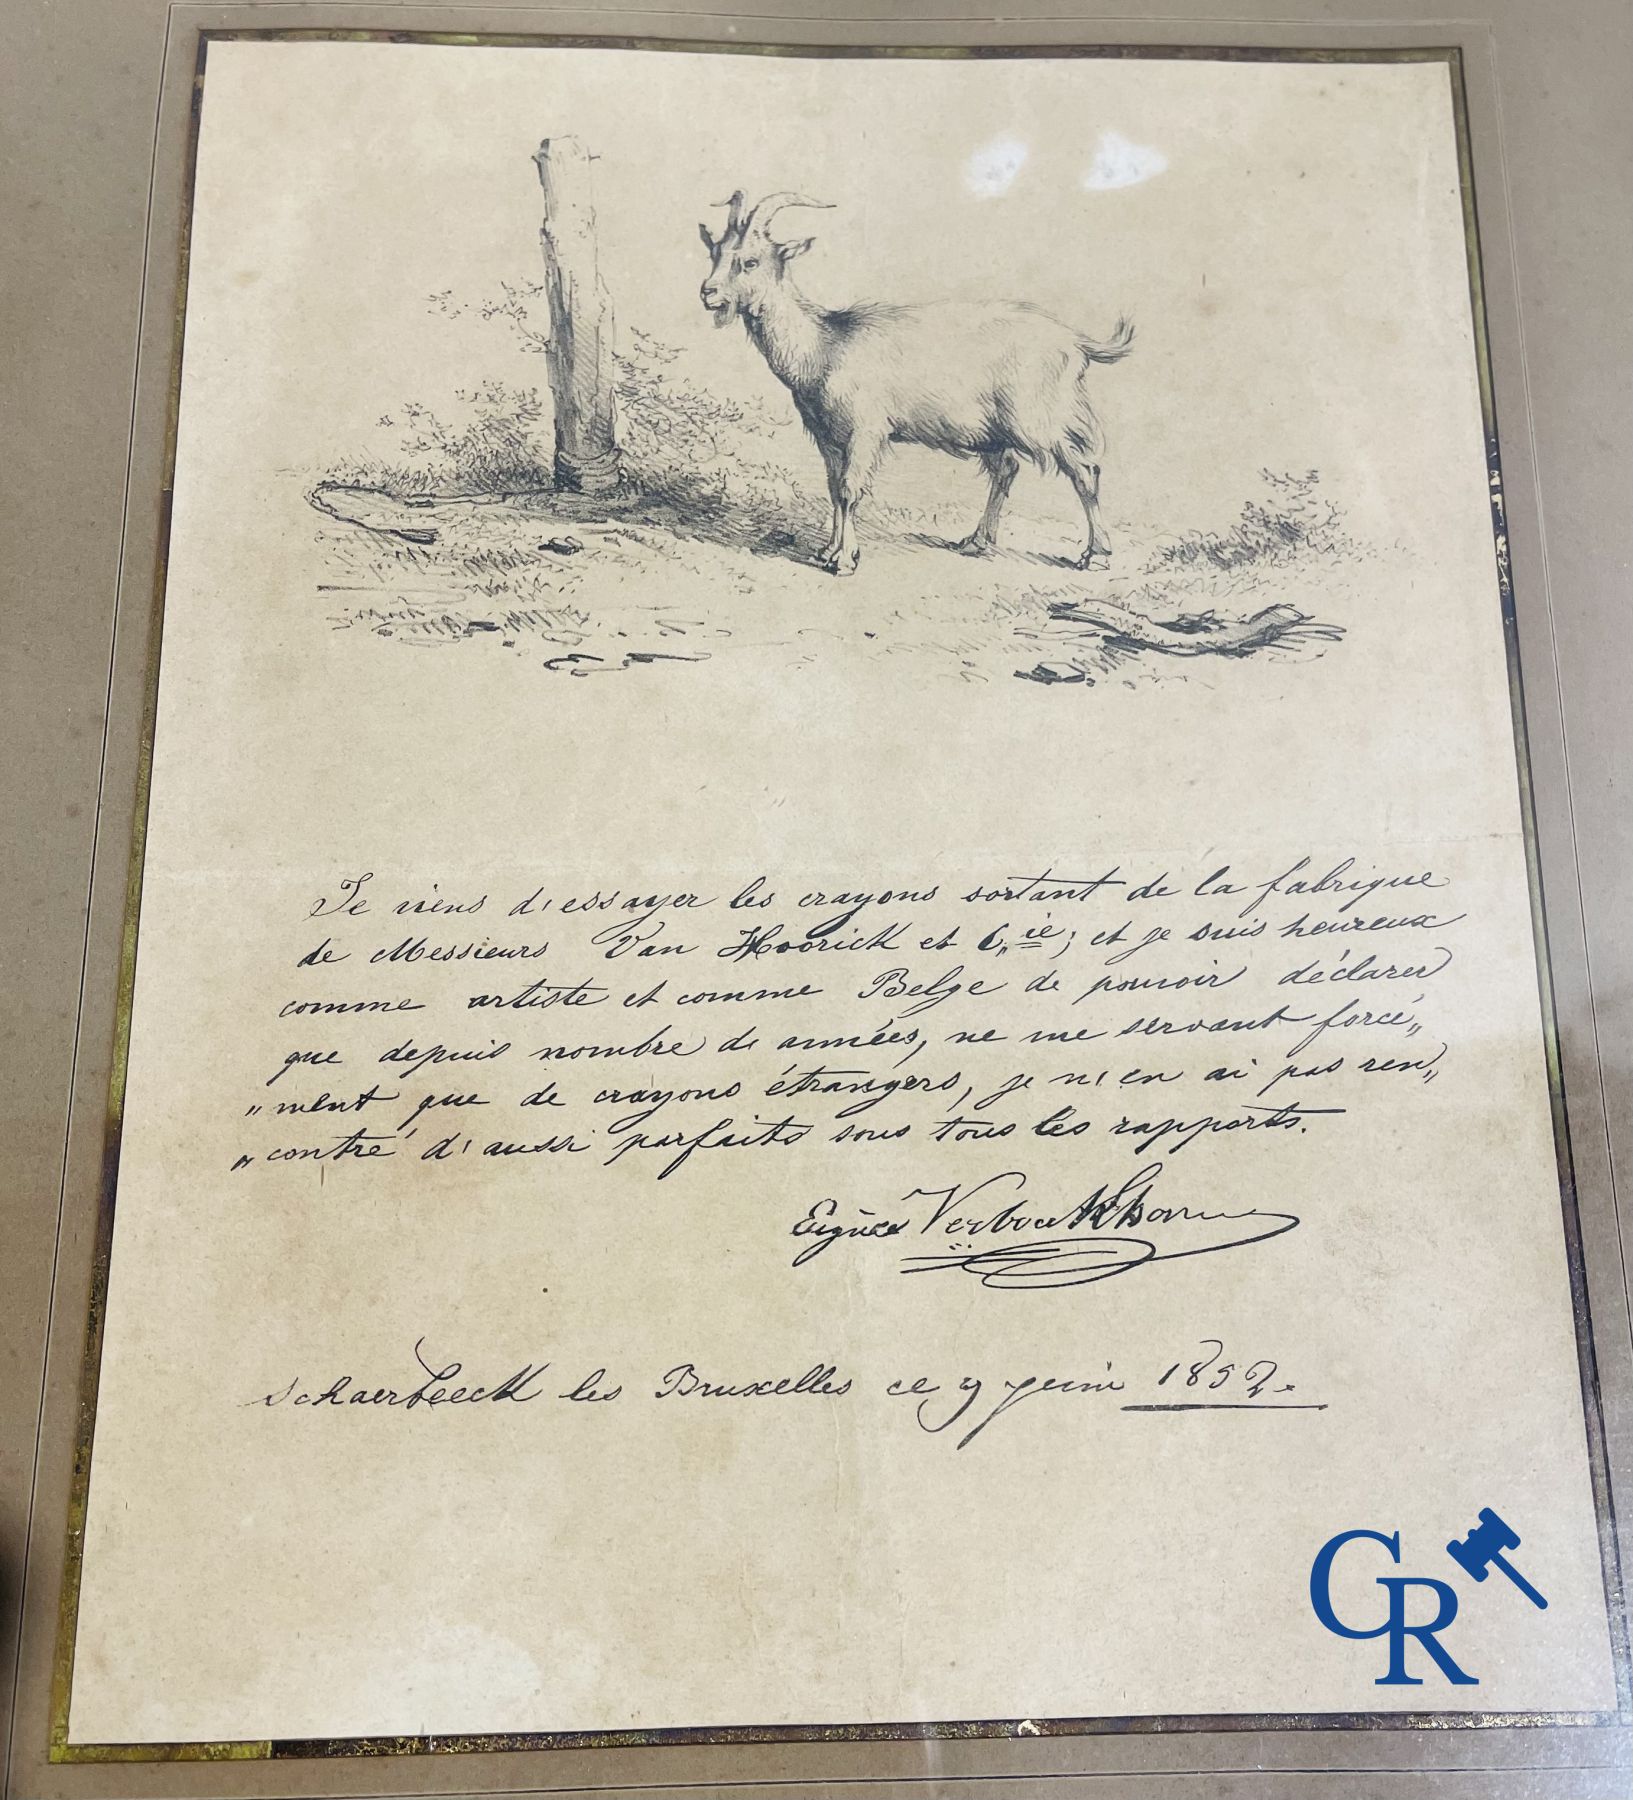 Je viens d'essayer les crayons sortant de la fabrique
de Messieurs Van Hoorick et C.ie; et je suis heureux
comme artiste et comme Belge de pouvoir déclarer
que depuis nombre de années, ne me servant forcé„
„ment que de crayons étrangers, je n'en ai pas ren„
„contré d'aussi parfaits sous tous les rapports.
Eugène Verboeckhoven
Schaerbeeck les Bruxelles ce 9 juin 1852.
CR